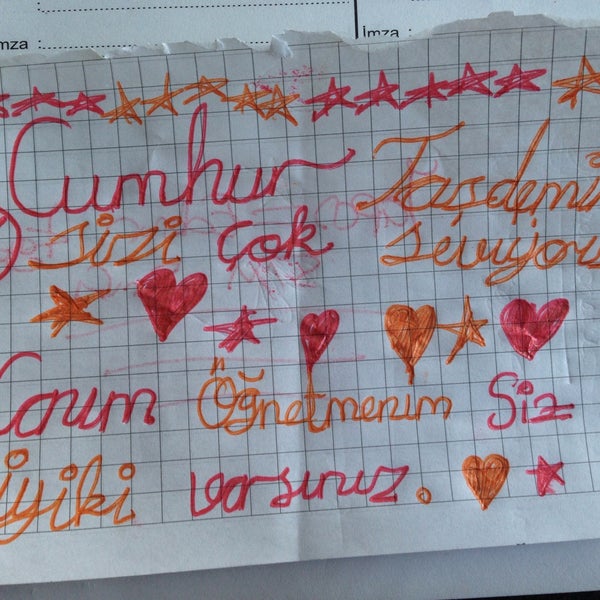 İmza :
İmza :
Cumhur Taşdemi
sizi çok seviyoru
Canım Öğretmenim Siz
iyiki varsınız.